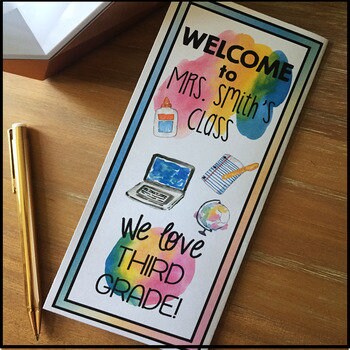 WELCOME
to
MRS. SMITH'S
CLASS
We love
THIRD
GRADE!